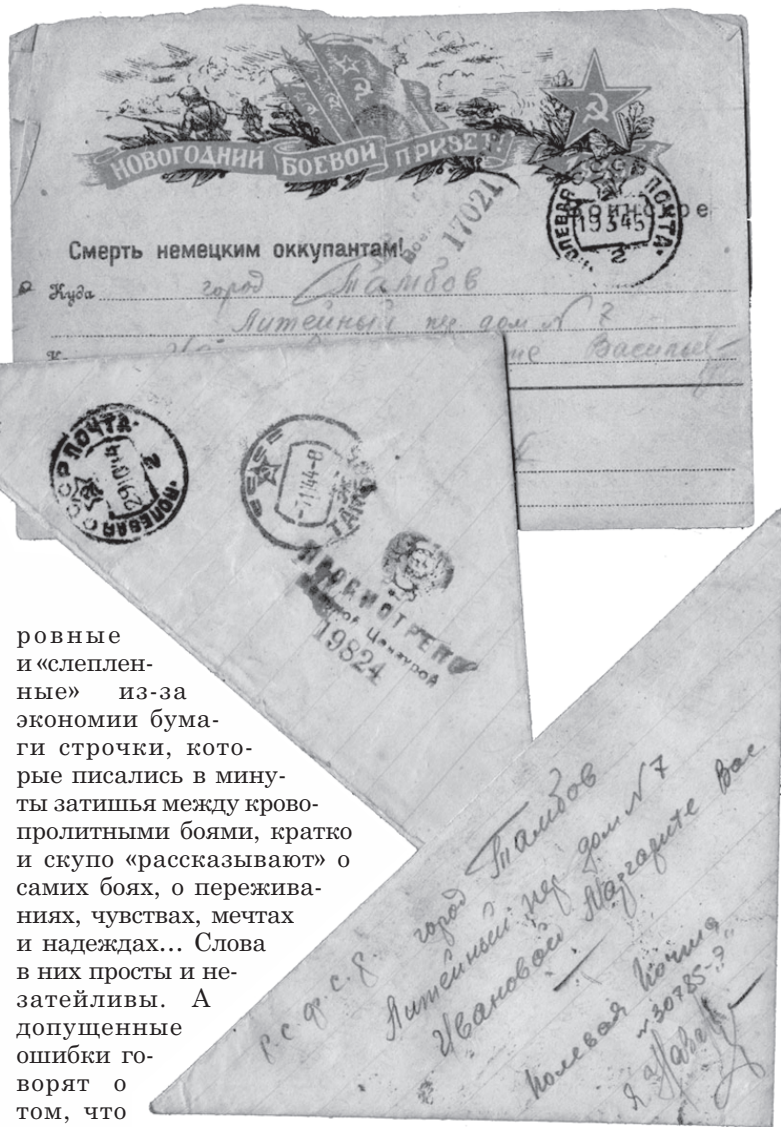 НОВОГОДНИЙ БОЕВОЙ ПРИВЕТ!
17021
СССР ПОЛЕВАЯ ПОЧТА
19 3 45
2
Смерть немецким оккупантам!
Куда город Тамбов
Литейный пер дом № 7
Василье
СССР ПОЧТА ПОЛЕВАЯ
29 10 44
2
СССР
-7 11 44-8
ПРОСМОТРЕНО
Цензурой
19824
ровные
и «слеплен-
ные» из-за
экономии бума-
ги строчки, кото-
рые писались в мину-
ты затишья между крово-
пролитными боями, кратко
и скупо «рассказывают» о
самих боях, о пережива-
ниях, чувствах, мечтах
и надеждах... Слова
в них просты и не-
затейливы. А
допущенные
ошибки го-
ворят о
том, что
Р.С.Ф.С.Р. город Тамбов
Литейный пер дом № 7
Ивановой Маргарите Вас.
Полевая Почта
№ 30785-